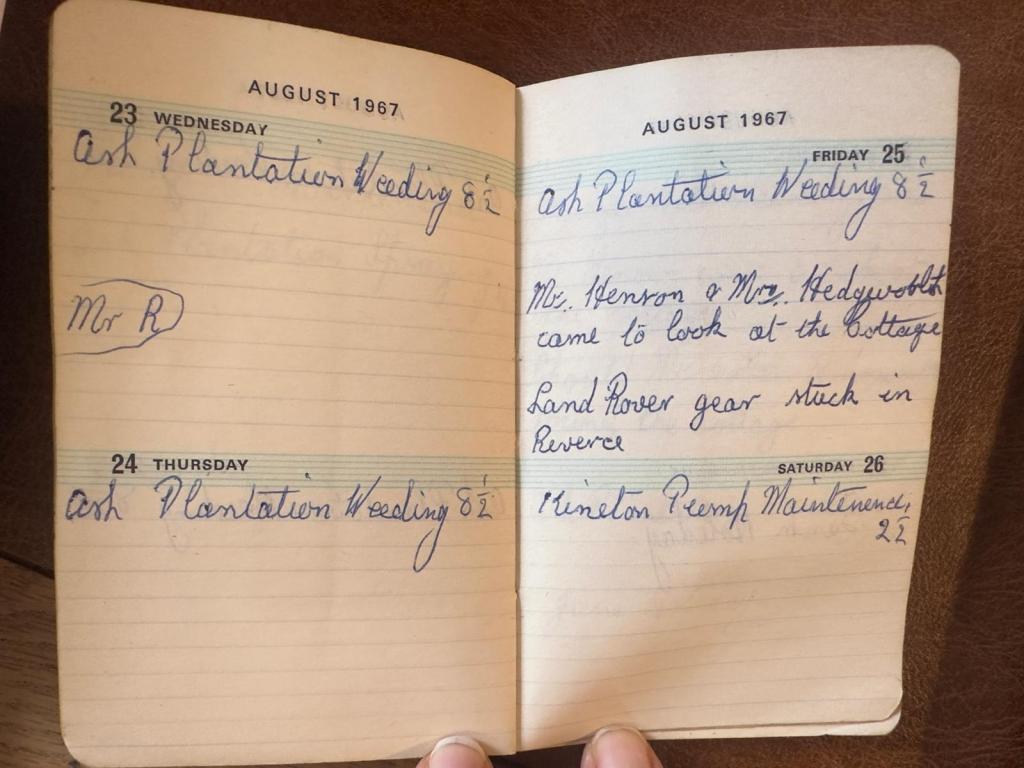 AUGUST 1967
23 WEDNESDAY
Ash Plantation Weeding 8½
Mr R
24 THURSDAY
Ash Plantation Weeding 8½
AUGUST 1967
FRIDAY 25
Ash Plantation Weeding 8½
Mr. Henson & Mrs. 
came to look at the Cottage
Land Rover gear stuck in
Reverce
SATURDAY 26
Kineton Pump Maintenence
2½